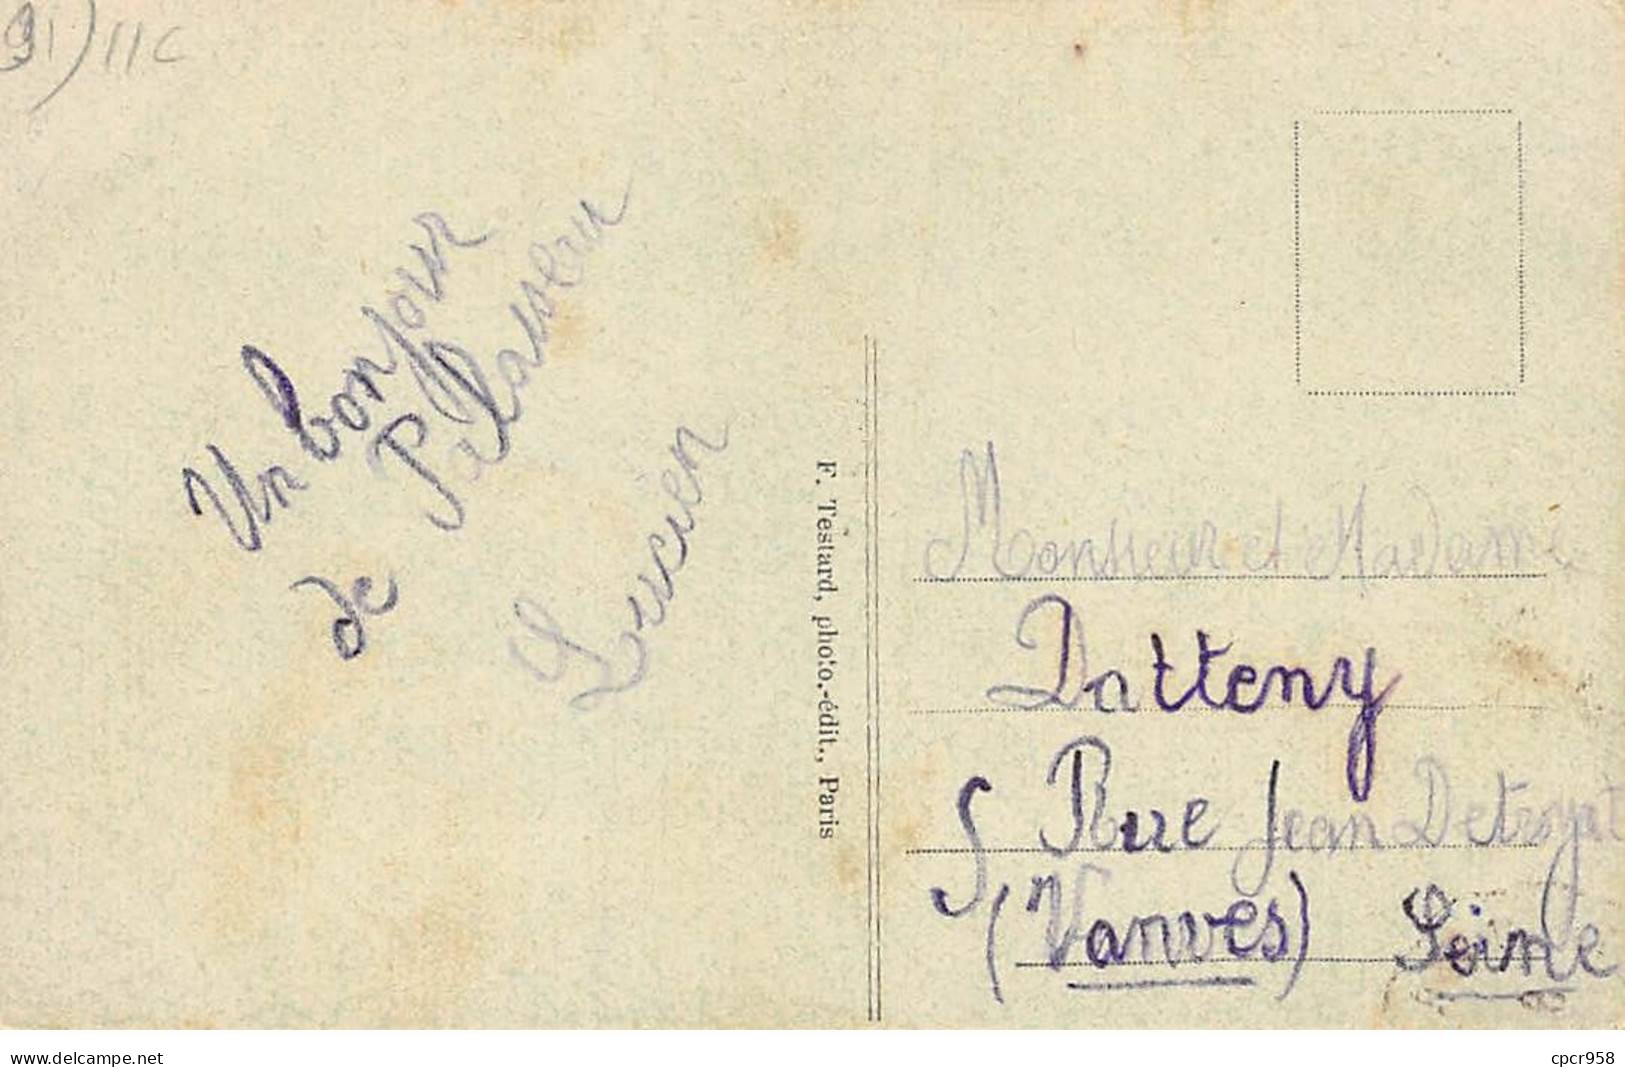 91) 11 C
Un bonjour
de Palaiseau
Lucien
F. Testard, photo.-édit., Paris
Monsieur et Madame
Datteny
5 Rue Jean Detroyat
(Vanves) Seine
www.delcampe.net
cpcr958